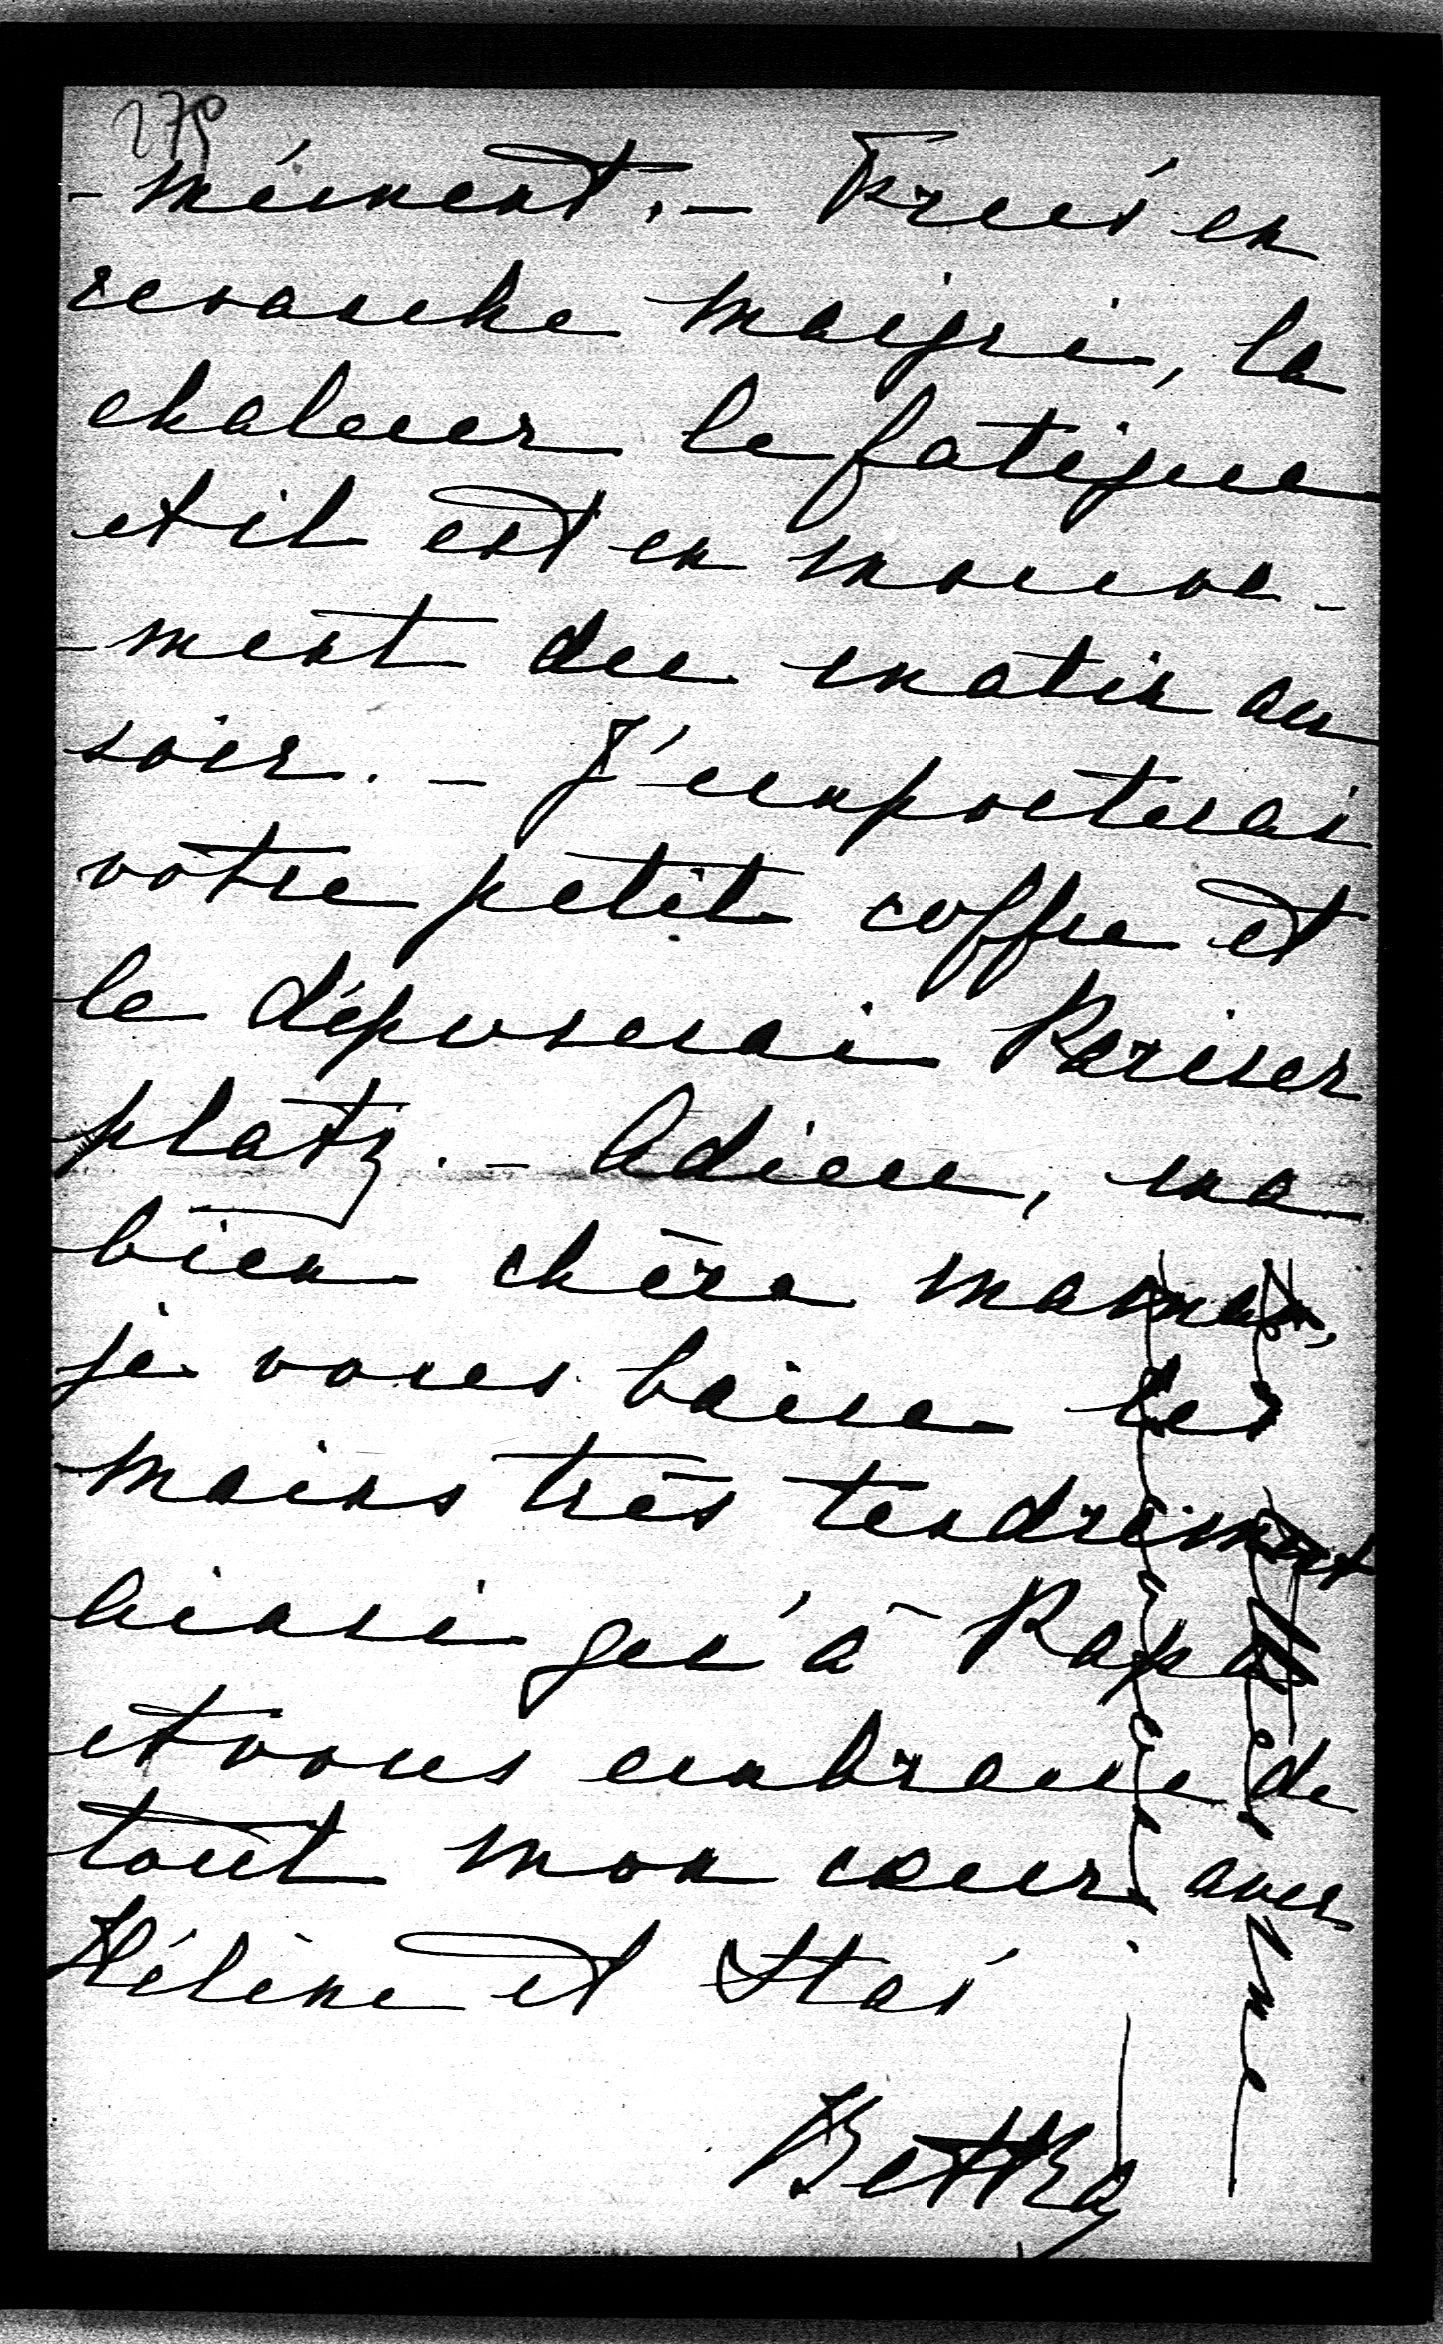 275
-mément. — Press en
revanche maigri, la
chaleur le fatigue
et il est en mouve-
-ment du matin au
soir. — J'emporterai
votre petit coffre et
le déposerai Pariser
platz. — Adieu, ma
bien chère maman,
je vous baise les
mains très tendrement
ainsi qu'à Papa
et vous embrasse de
tout mon cœur avec
Hélène et Stas
Betka